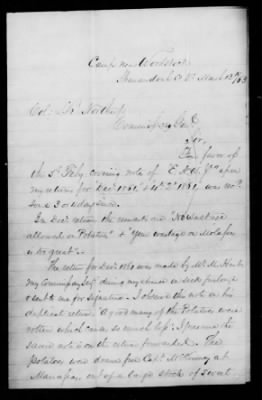 Camp near Woodstock
Shenandoah Co Va March 12th /63
Col:
Commissary Genl.
Sir,
Your favor of
the 5th Feby, covering note of
my return for Decr 1861
3 or 4 days since.
In Decr return the remarks are "No
allowed on Potatoes" & "Your wastage on Molasses
is too great".
The return for Decr 1861 was made by Mr.
my Commissary Sergt during my absence on sick furlough
& sent to me for signature. I observe this note on his
duplicate return. A good many of the Potatoes were
rotten which caused so much loss: I presume the
same note is on the return forwarded. The
Potatoes were drawn from Capt. McKinney at
Manassas, out of a large stock of sweet